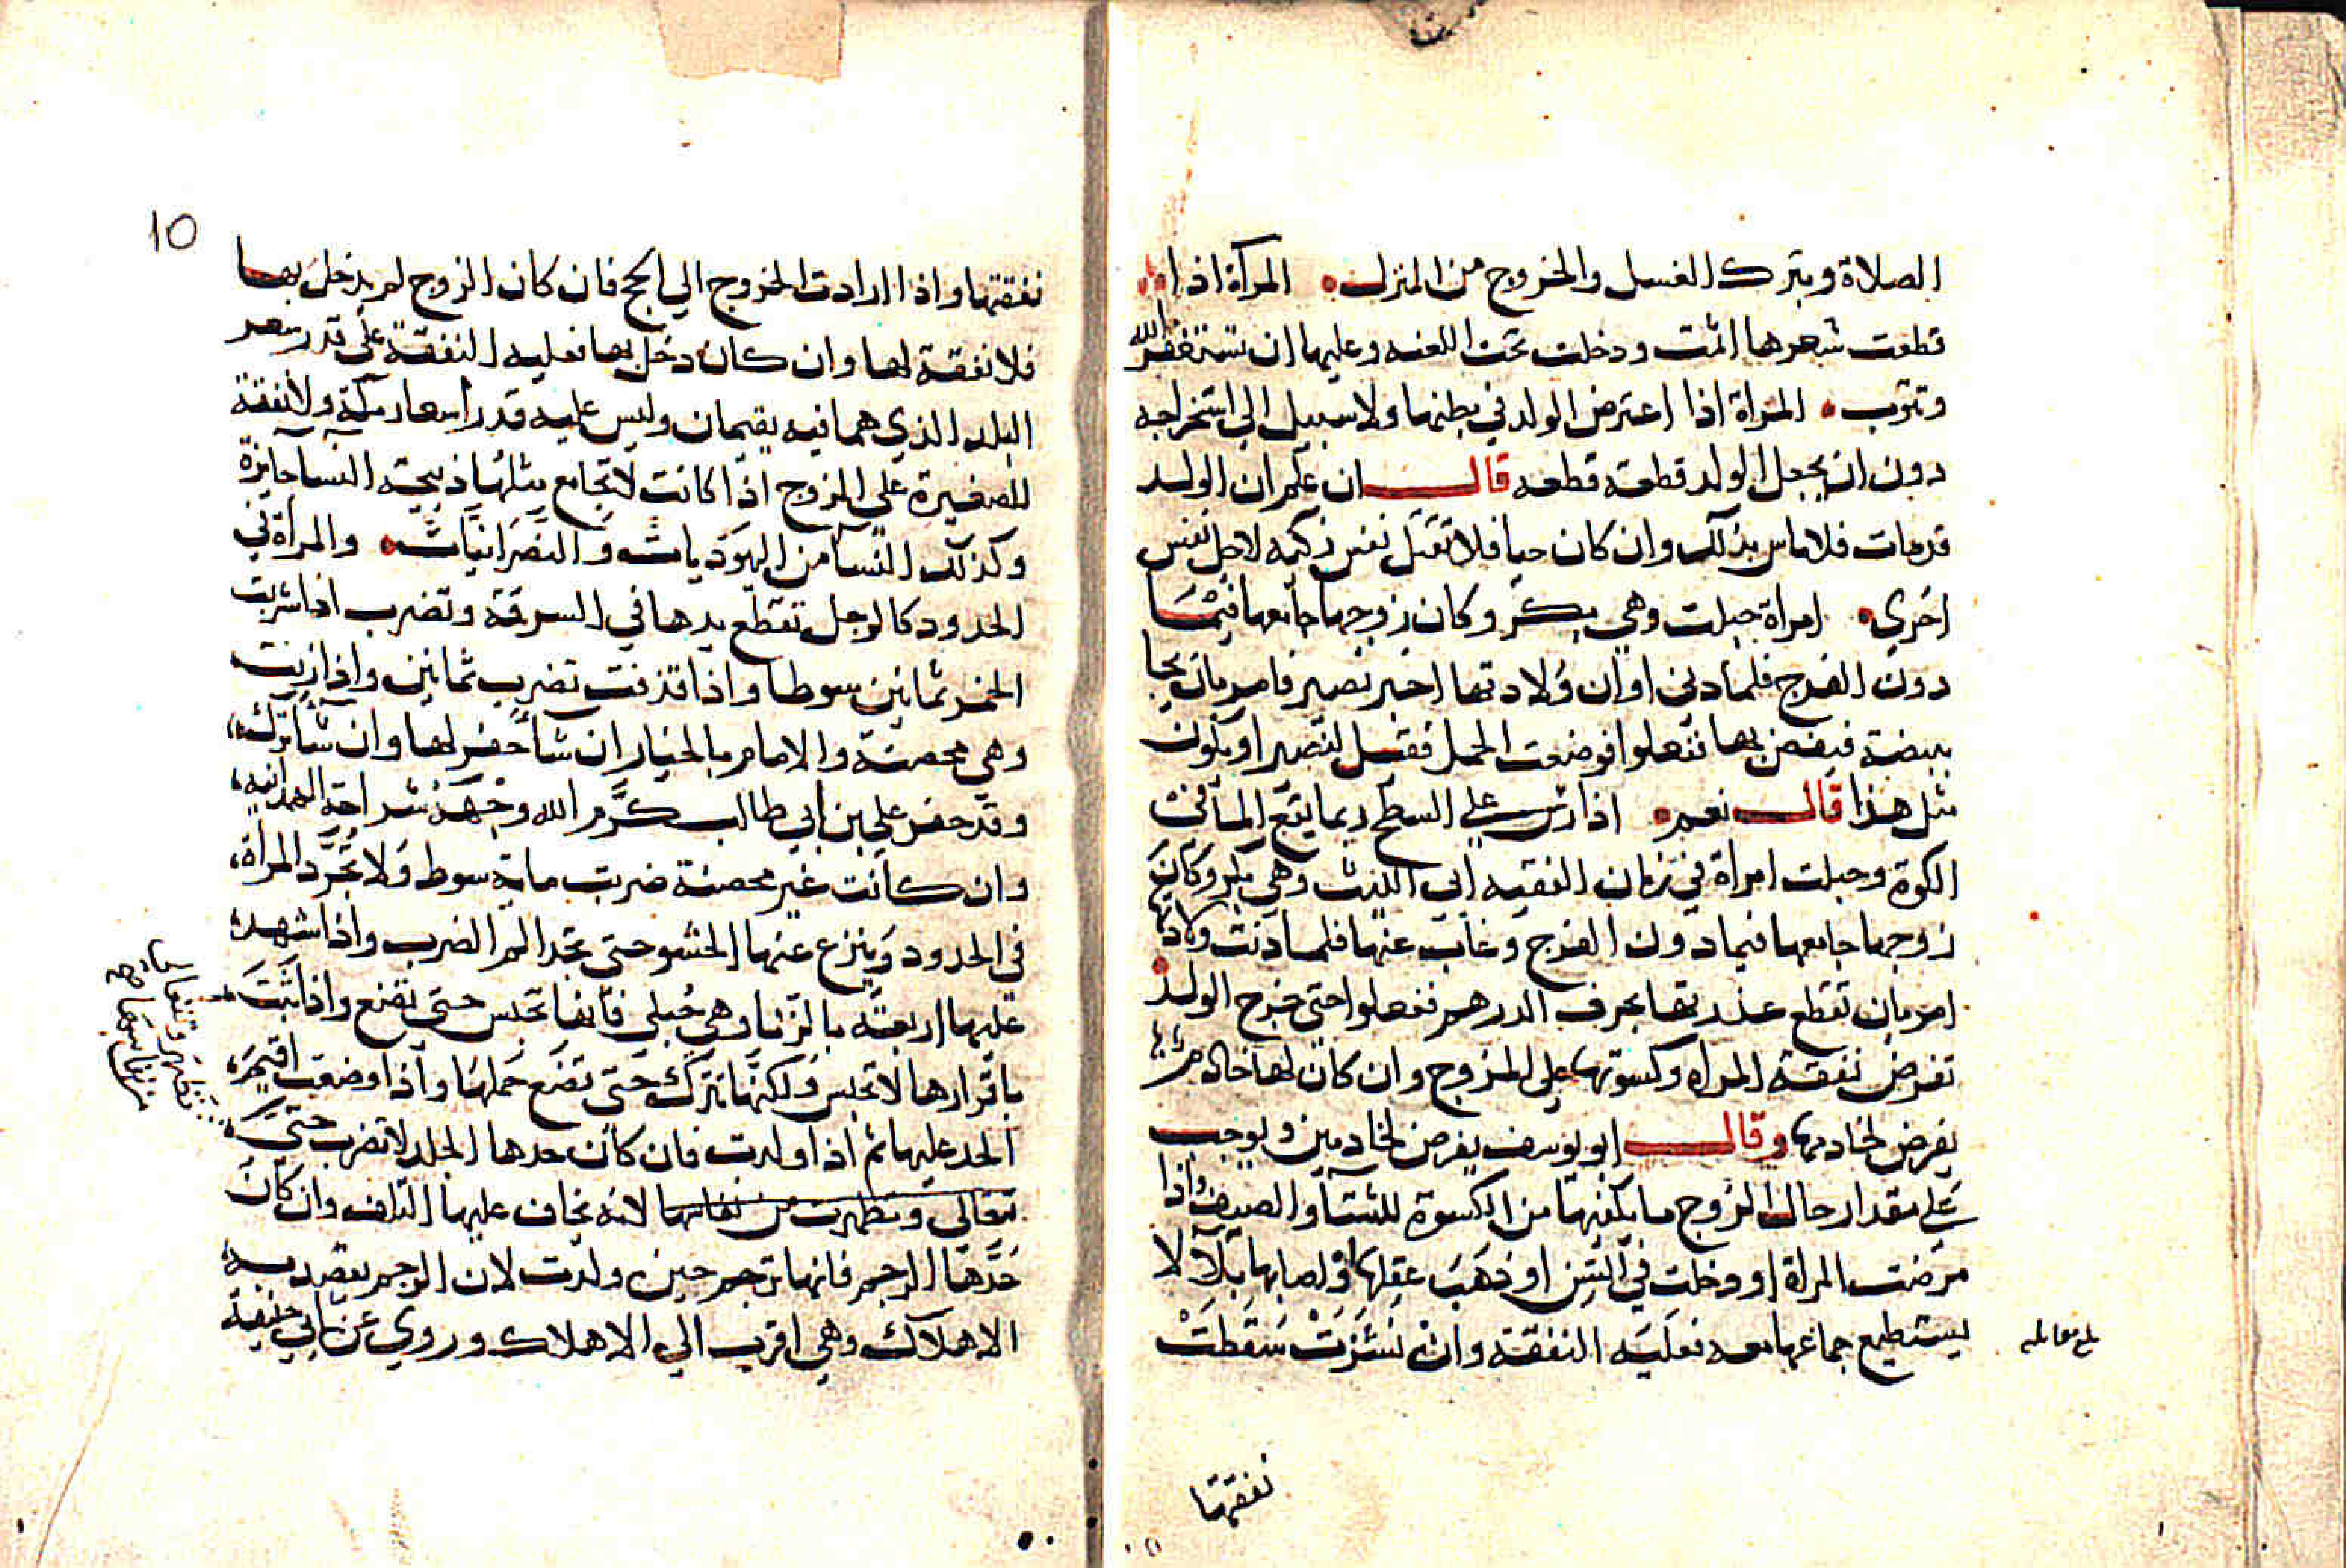 الصلاة وبترك الغسل والخروج من المنزل المرأة اذا
قطعت شعرها اثمت ودخلت تحت اللعنه وعليها ان تستغفر الله
وتتوب المراة اذا اعترض الولد في بطنها ولا سبيل الي استخراجه
دون ان يجعل الولد قطعة قطعه قال ان علم ان الولد
قد مات فلا باس بذلك وان كان حيا فلا تقتل نفس زكيه لاجل نفس
اخري امراة حبلت وهي بكر وكان زوجها جامعها فيما
دون الفرج فلما دني اوان ولادتها اخبر نصير فامر بان يجا
ببيضة فيفض بها ففعلوا فوضعت الحمل فقيل لنصير او يكون
مثل هذا قال نعم اذا رش علي السطح ربما يقع الما في
الكوة وحبلت امراة في زمان الفقيه ابي الليث وهي بكر وكان
زوجها جامعها فيما دون الفرج وغاب عنها فلما دنت ولادتها
امر بان تقطع عذرتها بحرف الدرهم ففعلوا حتي خرج الولد
تفرض نفقة المراه وكسوتها علي الزوج وان كان لها خادم
يفرض لخادمها وقال ابو يوسف يفرض لخادمين ويوجب
علي مقدار حال الزوج ما يكفيها من الكسوة للشتا والصيف واذا
مرضت المراة او دخلت في السن او ذهب عقلها او اصابها بلا لا
يستطيع جماعها معه فعليه النفقة وان نشزت سقطت
بلغ مقابله
نفقتها
10
نفقتها واذا ارادت الخروج الي الحج فان كان الزوج لم يدخل بها
فلا نفقة لها وان كان دخل بها فعليه النفقة علي قدر سعر
البلد الذي هما فيه يقيمان وليس عليه قدر اسعار مكة ولا نفقة
للصغيرة علي الزوج اذا كانت لا تجامع مثلها ذبيحة النسا جايزة
وكذلك النسا من اليهوديات والنصرانيات والمرأة في
الحدود كالرجل تقطع يدها في السرقة وتضرب اذا شربت
الخمر ثمانين سوطا واذا قذفت تضرب ثمانين واذا زنت
وهي محصنة والامام بالخيار ان شا حفر لها وان شا ترك
وقد حفر علي بن ابي طالب كرم الله وجهه لشراحة الهمدانيه
وان كانت غير محصنة ضربت ماية سوط ولا تجرد المرأة
في الحدود وينزع عنها الحشو حتي تجد الم الضرب واذا شهد
عليها اربعة بالزنا وهي حبلي فانها تحبس حتي تضع واذا ثبت
باقرارها لا تحبس ولكنها تترك حتي تضع حملها واذا وضعت اقيم
الحد عليها ثم اذا ولدت فان كان حدها الجلد لا تضرب حتي
تتعالى وتطهرت من نفاسها لانه يخاف عليها التلف وان كان
حدها الرجم فانها ترجم حين ولدت لان الرجم يقصد به
الاهلاك وهي اقرب الي الاهلاك وروي عن ابي حنيفة